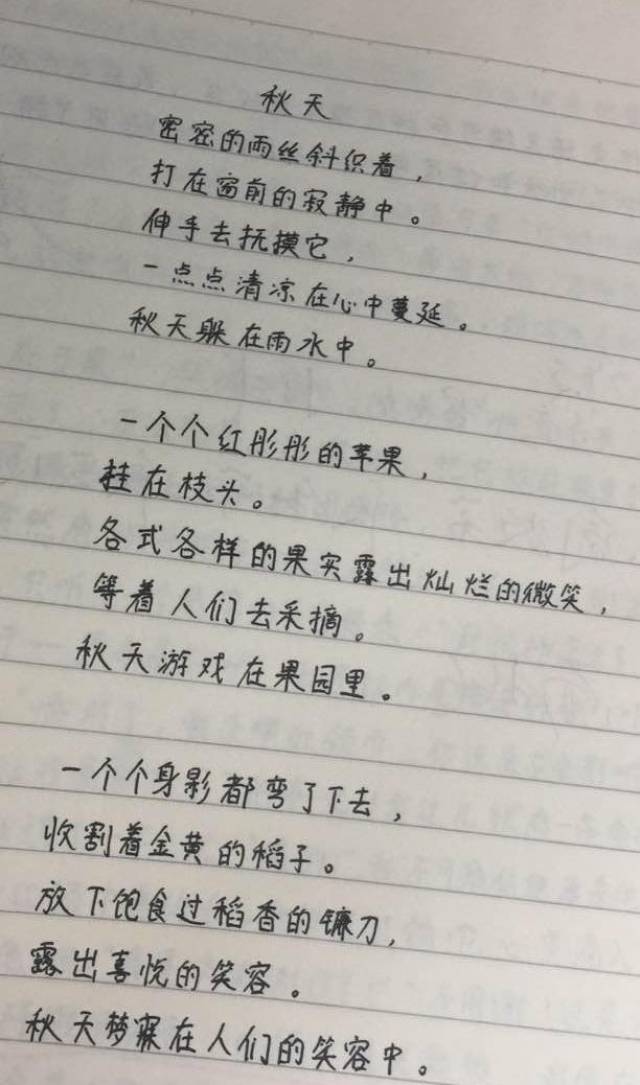 秋天
密密的雨丝斜织着，
打在窗前的寂静中。
伸手去抚摸它，
一点点清凉在心中蔓延。
秋天躲在雨水中。
一个个红彤彤的苹果，
挂在枝头。
各式各样的果实露出灿烂的微笑，
等着人们去采摘。
秋天游戏在果园里。
一个个身影都弯了下去，
收割着金黄的稻子。
放下饱食过稻香的镰刀，
露出喜悦的笑容。
秋天梦寐在人们的笑容中。